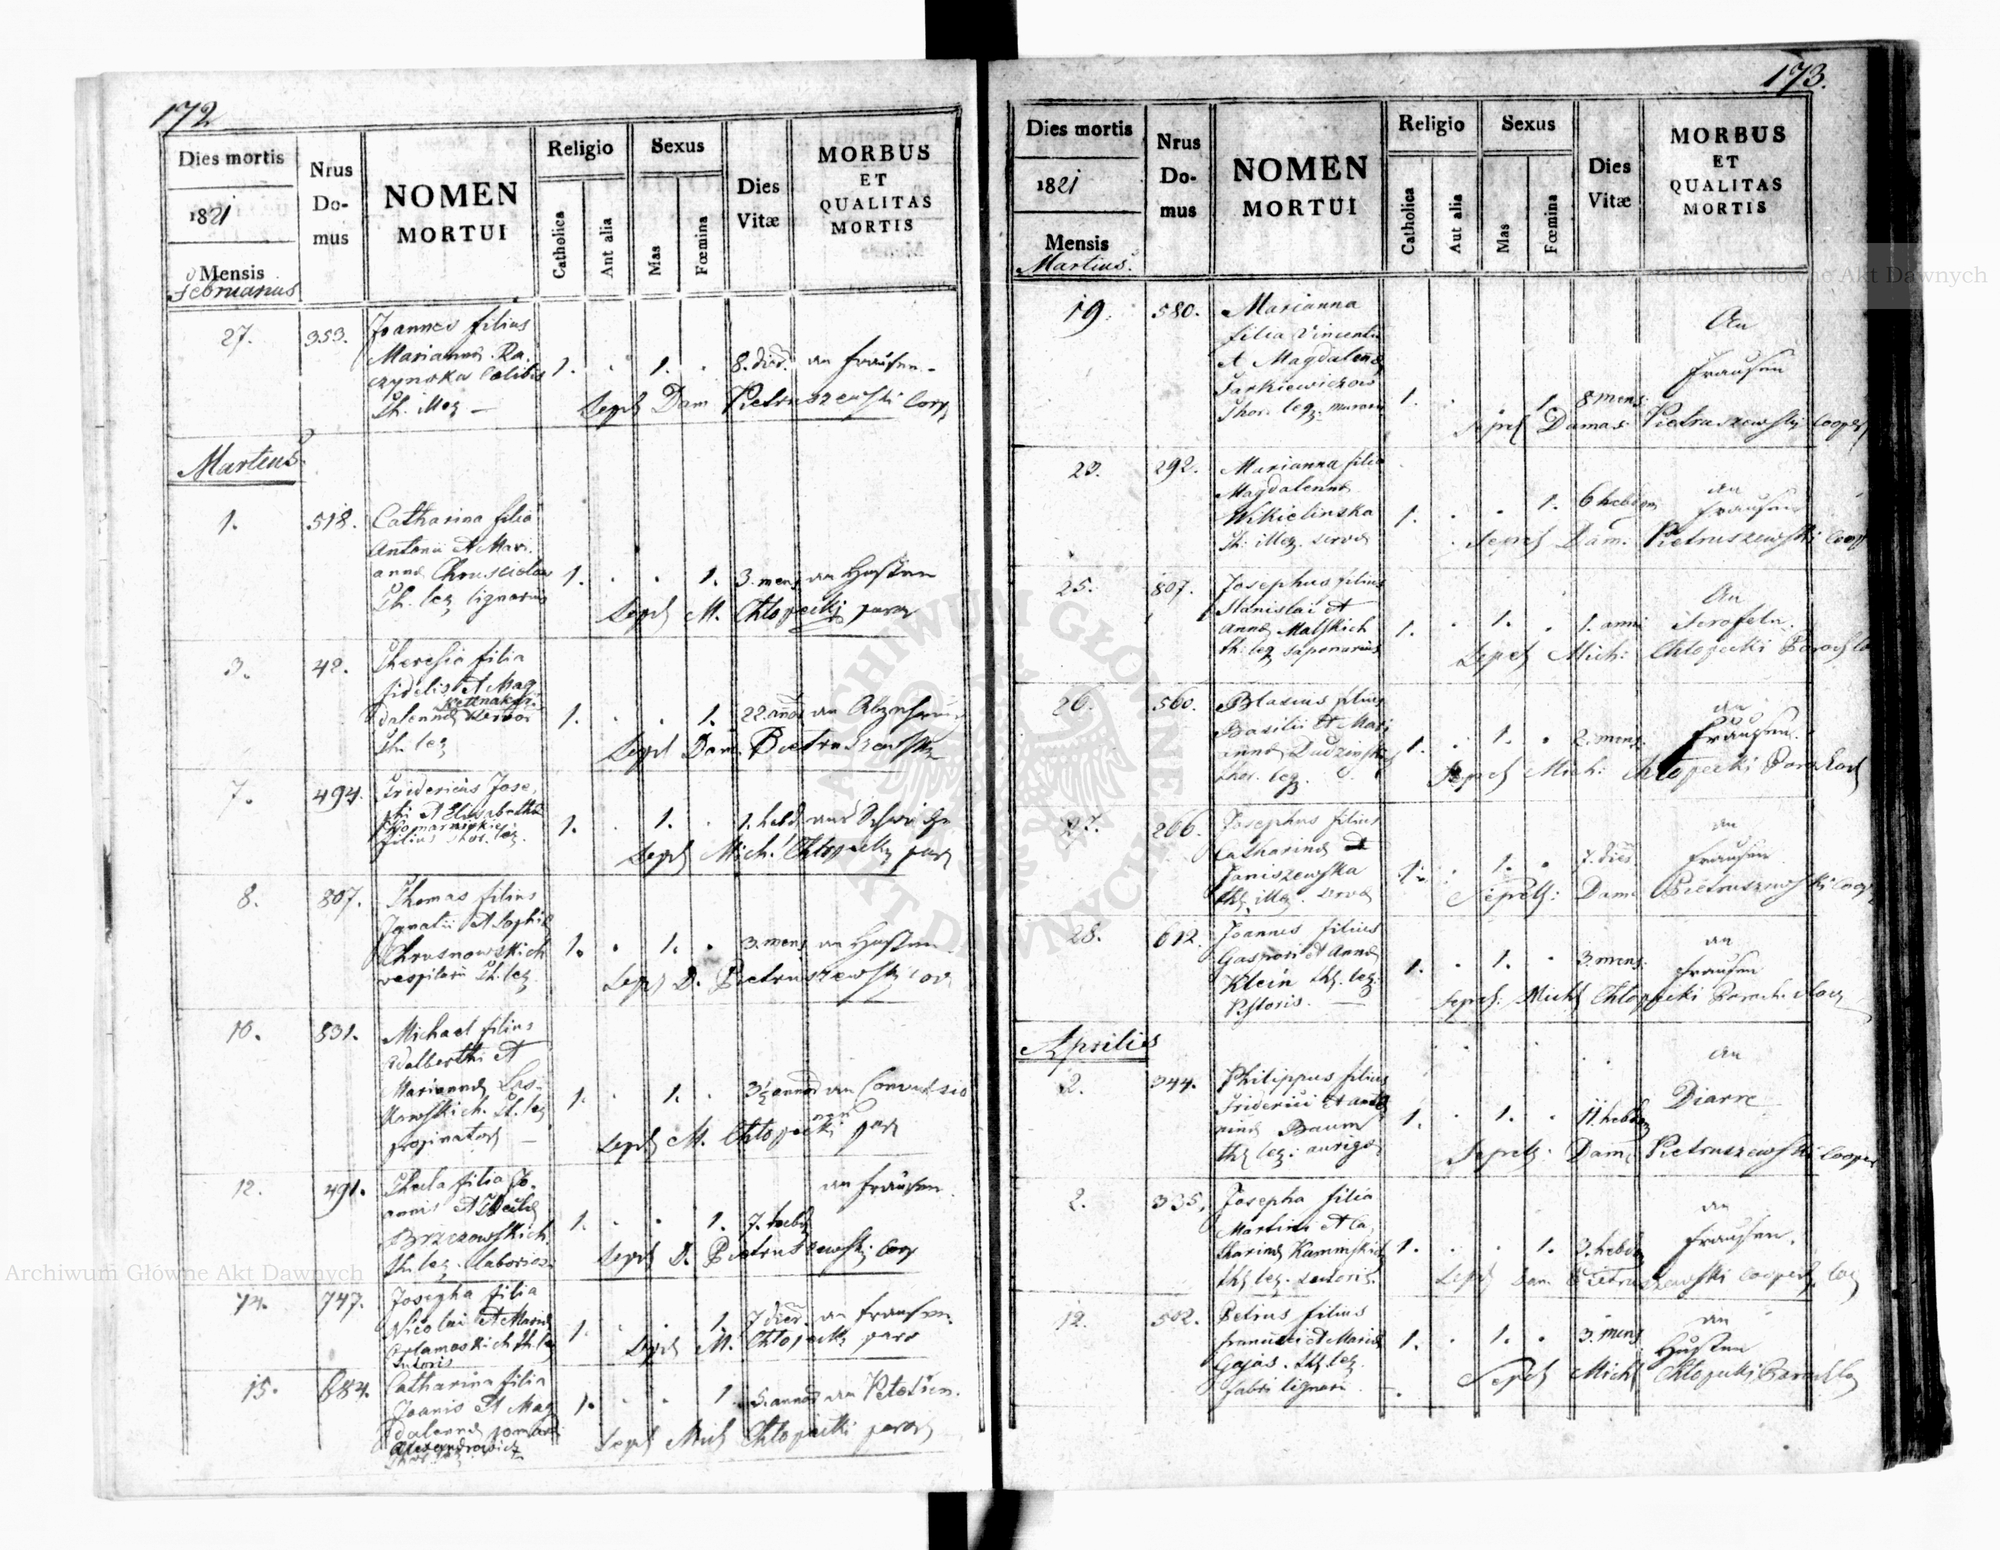 172
Dies mortis
1821
Mensis
Februarius
Nrus
Do-
mus
NOMEN
MORTUI
Religio
Catholica
Aut alia
Sexus
Mas
Fœmina
Dies
Vitæ
MORBUS
ET
QUALITAS
MORTIS
27. 353. Joannes filius
Marianna Ra-
czynska Cœlibis
Th. illeg — 1. 1. 8. dier. an Fraisen
Sepel Dam Pietruszewski Coop
Martius
1. 518. Catharina filia
Antonii et Mari-
annæ
Th. leg lignarius 1. 1. 3. mens an Husten
Sepel M. Chlopecki paroch
3. 42. Theresia filia
Fidelis et Mag-
dalennæ
Th. leg 1. 1. 22. annos an Abzehrung
Sepel Dam. Pietruszewski
7. 494. Fridericus Jose-
phi et Elisabetha
filius Thor. leg. 1. 1. 1. hebd
Sepel Mich. Chlopecki par
8. 807. Thomas filius
Ignatii et Sophiæ
Chrusnowskich
Th. leg. 1. 1. 3. mens an Husten
Sepel D. Pietruszewski
10. 831. Michael filius
Adalberthi et
Mariannæ Las-
Th. leg
propinatoris — 1. 1. 3½ annor an Convulsio
Sepel M. Chlopecki par
12. 491. Thecla filia Jo-
annis et
Brzezowskich.
Th. leg. laborios. 1. 1. 7. hebd an Fraisen.
Sepel D. Pietruszewski Coop
14. 747. Josepha filia
Nicolai et Mariæ
Th. leg
Sutoris 1. 1. 7 dier. an Fraisen.
Sepel M. Chlopecki paro
15. 684. Catharina filia
Joanis et Mag
dalennæ
Alexandrowicz
1. 1. 5. annor an
Sepel Mich Chlopecki paroch
173.
Dies mortis
1821
Mensis
Martius.
Nrus
Do-
mus
NOMEN
MORTUI
Religio
Catholica
Aut alia
Sexus
Mas
Fœmina
Dies
Vitæ
MORBUS
ET
QUALITAS
MORTIS
19. 580. Marianna
filia Vincentii
et Magdalenæ
Thor. leg. 1. 1. 8. mens. An Fraisen
Sepel Damas Pietruszewski Cooper
23. 292. Marianna filia
Magdalennæ
Wikielinska
Th. illeg. servæ 1. 1. 6 hebdom an Fraisen
Sepel Dam. Pietruszewski Coop
25. 807. Josephus filius
Stanislai et
Annæ Malskich
Th. leg saponarius 1. 1. 1. anni An Scrofeln.
Sepel Mich: Chlopecki Paroch
26. 560. Blasius filius
Basilii et Mari
annæ
Thor. leg. 1. 1. 2. mens. an Fraisen.
Sepel Mich: Chlopecki Paroch
27. 266. Josephus filius
Catharinæ
Janiszewska
Th illeg. servæ 1. 1. 7. dies an Fraisen
Sepel: Dam Pietruszewski Coop
28. 612. Joannes filius
Gaspari et Annæ
Klein Th. leg.
Pistoris. — 1. 1. 3. mens. an Fraisen
Sepel: Mich Chlopecki Paroch.
Aprilis
2. 344. Philippus filius
Friderici et
Baum
Th leg: aurigæ 1. 1. 11. hebdom an Diarre
Sepel: Dam. Pietruszewski Cooper
2. 335. Josepha filia
Martini et Ca-
tharinæ Kaminskich
Th leg. sutoris 1. 1. 3. hebdom an Fraisen.
Sepel Dam Pietruszewski Cooper
12. 502. Petrus filius
Francisci et Mariæ
Gajas. Th. leg.
fabri lignari 1. 1. 3. mens an Husten
Sepel Mich Chlopecki Paroch
Archiwum Główne Akt Dawnych
Archiwum Główne Akt Dawnych
ARCHIWUM GŁÓWNE AKT DAWNYCH